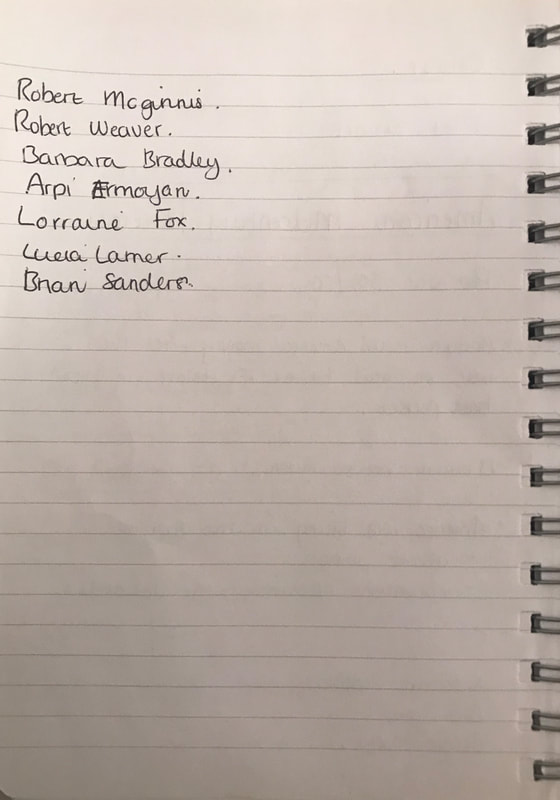 Robert Mcginnis.
Robert Weaver.
Barbara Bradley.
Arpi Ermoyan.
Lorraine Fox.
Lucia Larner.
Brian Sanders.